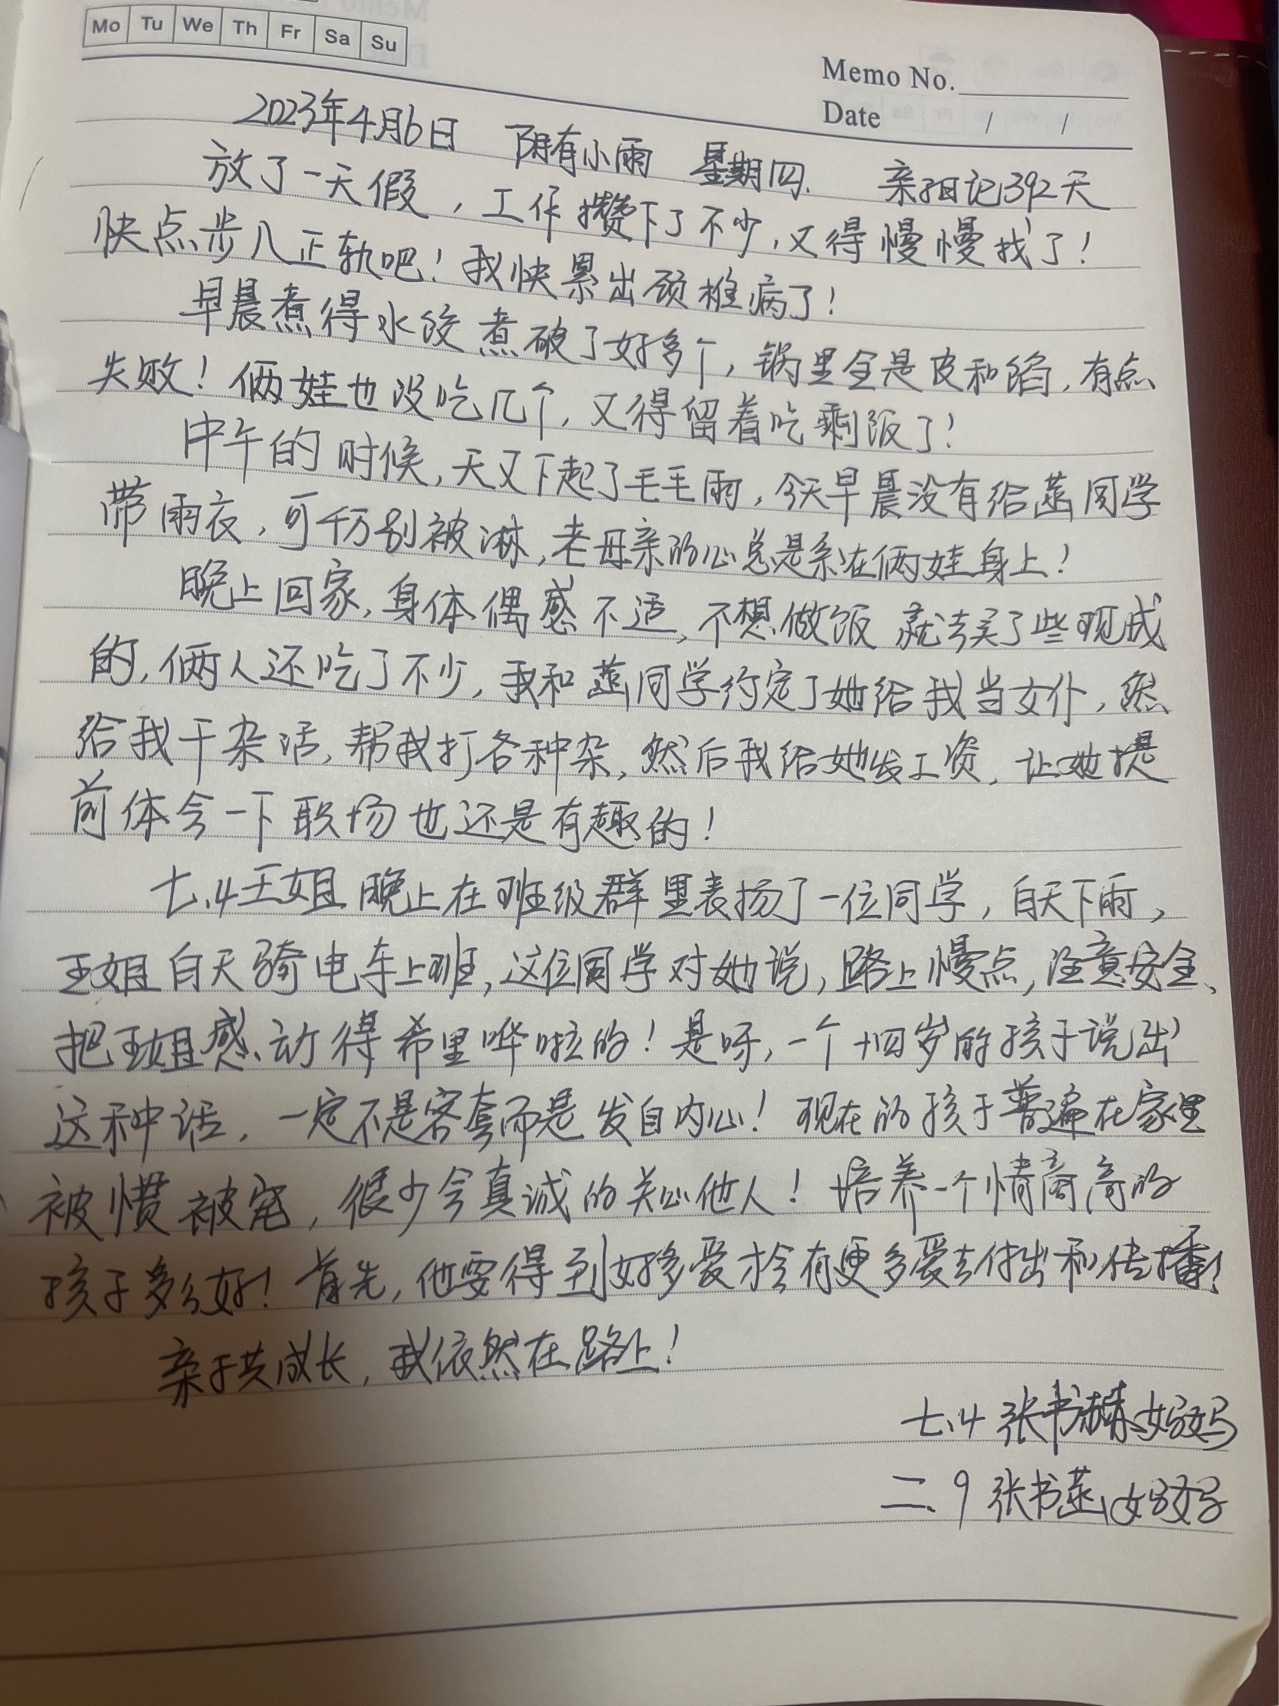 Mo Tu We Th Fr Sa Su
Memo No.
Date / /
2023年4月6日 阴有小雨 星期四. 亲子日记392天
放了一天假，工作攒下了不少，又得慢慢找了！
快点步入正轨吧！我快累出颈椎病了！
早晨煮得水饺煮破了好多个，锅里全是皮和馅，有点
失败！俩娃也没吃几个，又得留着吃剩饭了！
中午的时候，天又下起了毛毛雨，今天早晨没有给菡同学
带雨衣，可千万别被淋，老母亲的心总是系在俩娃身上！
晚上回家，身体偶感不适，不想做饭就去买了些现成
的，俩人还吃了不少，我和菡同学约定了她给我当女仆，然
给我干杂活，帮我打各种杂，然后我给她发工资，让她提
前体会一下职场也还是有趣的！
七.4王姐晚上在班级群里表扬了一位同学，白天下雨，
王姐白天骑电车上班，这位同学对她说，路上慢点，注意安全、
把王姐感动得希里哗啦的！是呀，一个十四岁的孩子说出
这种话，一定不是客套而是发自内心！现在的孩子普遍在家里
被惯被宠，很少会真诚的关心他人！培养一个情商高的
孩子多么好！首先，他要得到好多爱才会有更多爱去付出和传播！
亲子共成长，我依然在路上！
七.4 张书赫妈妈
二.9 张书菡妈妈